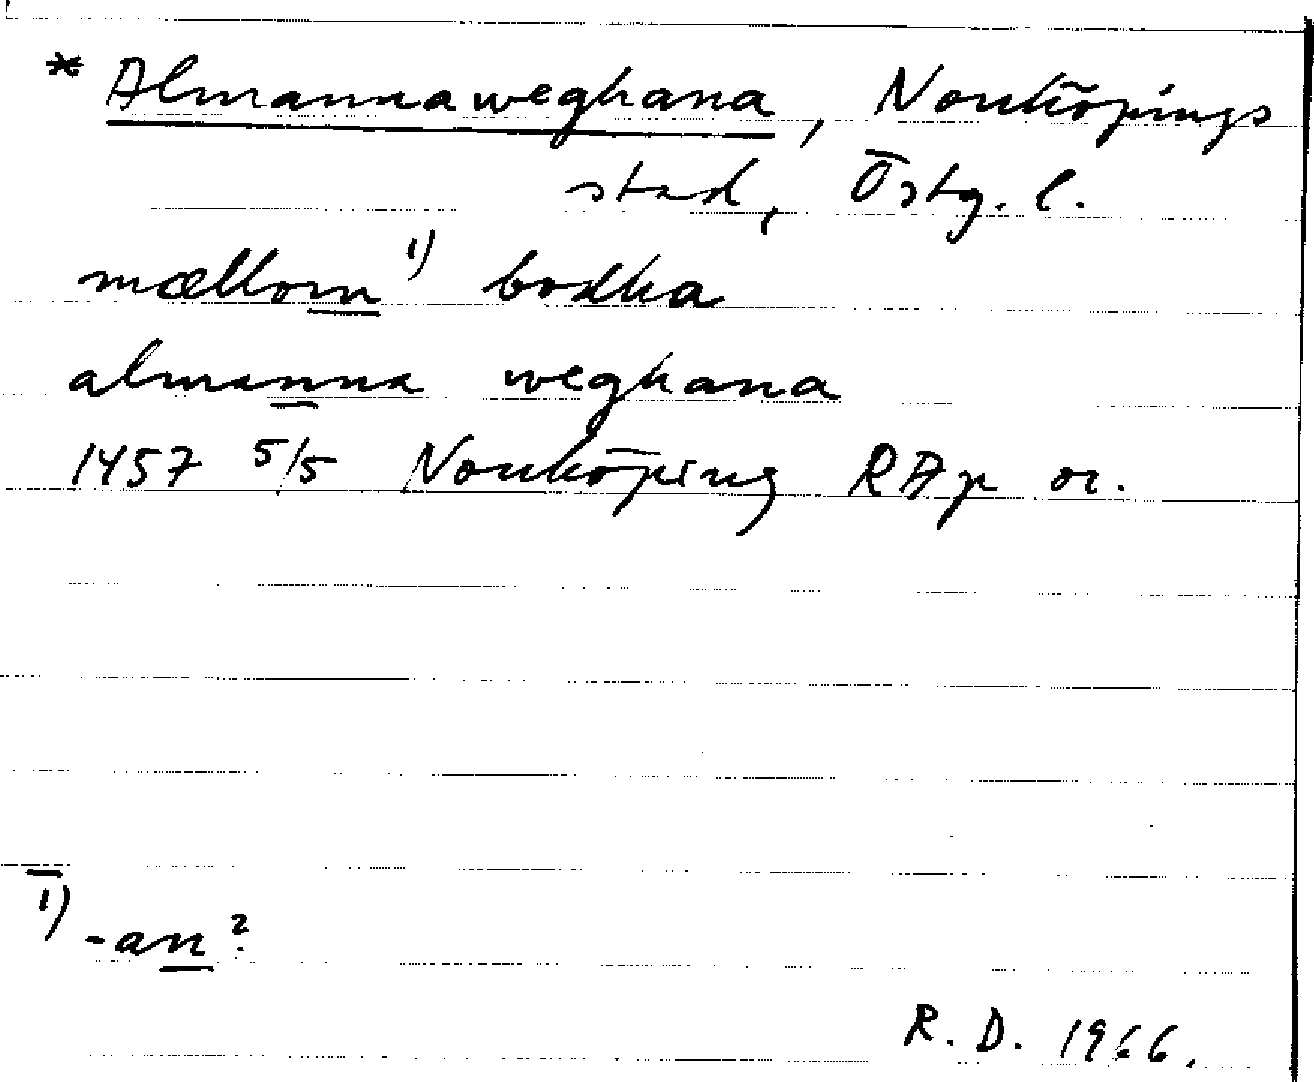 * Almannaweghana, Norrköpings
stad, Östg. l.
mællom ¹⁾ bodha
almanna weghana
1457 5/5 Norrköping RAp or.
¹⁾ -an?
R. D. 1966.